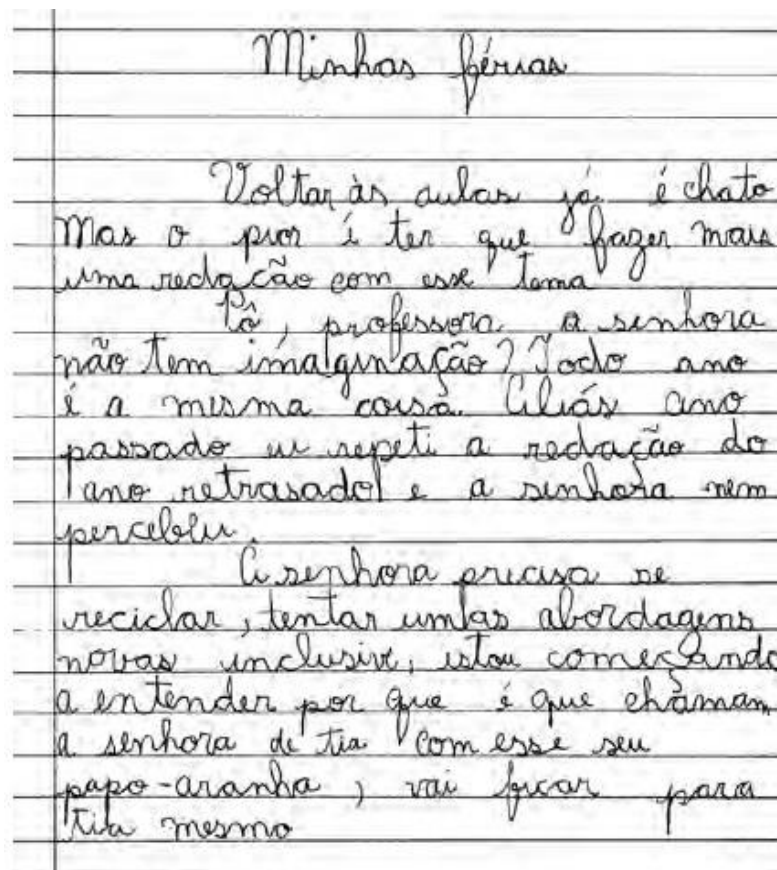 Minhas férias
Voltar às aulas já é chato
Mas o pior é ter que fazer mais
uma redação com esse tema
Pô, professora a senhora
não tem imaginação? Todo ano
é a mesma coisa. Aliás ano
passado eu repeti a redação do
ano retrasado e a senhora nem
percebeu.
A senhora precisa se
reciclar, tentar umas abordagens
novas inclusive, estou começando
a entender por que é que chamam
a senhora de tia com esse seu
papo-aranha, vai ficar para
tia mesmo